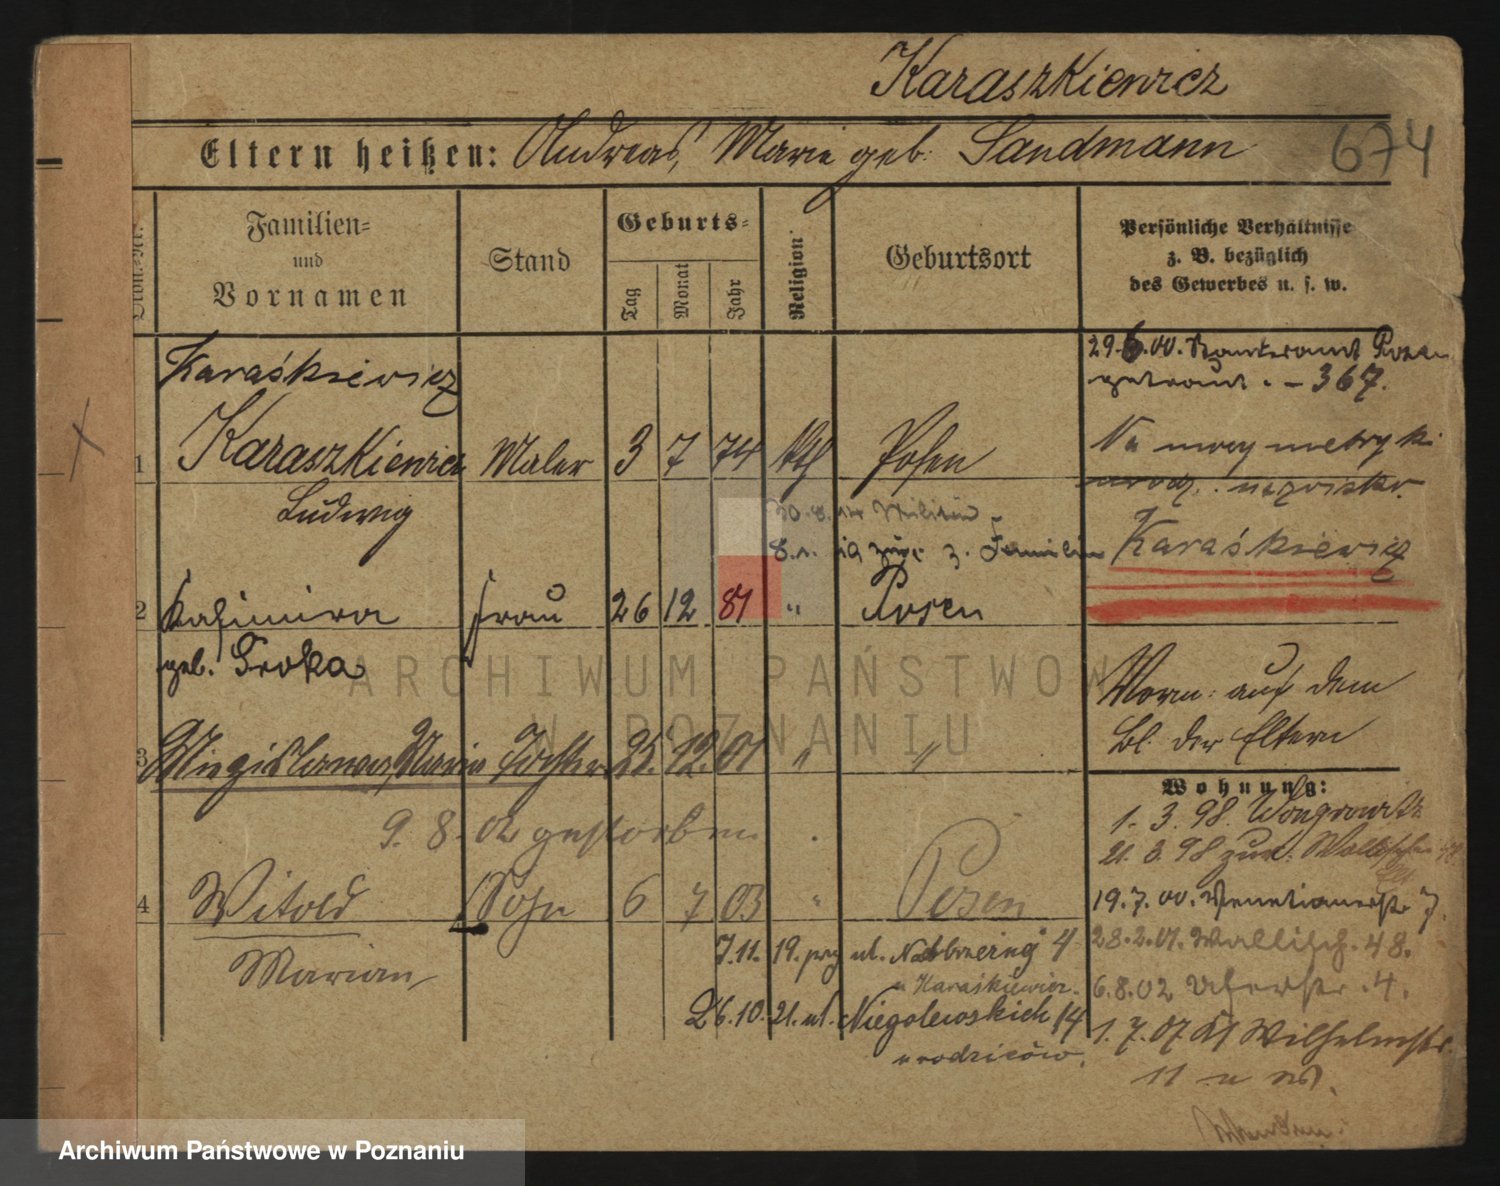 Karaszkiewicz
Eltern heißen: Andreas, Marie geb. Sandmann
674
Familien- und Vornamen
Stand
Geburts-
Tag Monat Jahr
Religion
Geburtsort
Persönliche Verhältnisse
z. B. bezüglich
des Gewerbes u. s. w.
Karaśkiewicz
29.6.00. Standesamt Posen
getraut. – 367.
1 Karaszkiewicz Maler 3 7 74 kth Posen
Ludwig
Na mocy metryki
urodz. nazwisko.
Karaśkiewicz
30.8.14 Militär
8.1. 19 zur. z. Familie
2 Kasimira Frau 26 12 81 " Posen
geb. Troka
Vorm: auf dem
Bl. der Eltern
3 Miegislawa, Maria Tochter 25. 12. 01 " "
9. 8. 02 gestorben
Wohnung:
1. 3. 98. Wongrowitz
21. 3. 98 zur. Wallischei 48
4 Witold Sohn 6 7 03 " Posen
Marian
19.7.00. Venetianerstr 7.
28.2.01. Wallisch. 48.
6.8.02 Uferstr. 4.
1. 7. 07 Wilhelmstr.
11
7.11. 19. prg ul. 4
u Karaśkiewicz.
26.10. 21. ul. Niegolewskich 14
u rodziców.
ARCHIWUM PAŃSTWOW
W POZNANIU
Archiwum Państwowe w Poznaniu